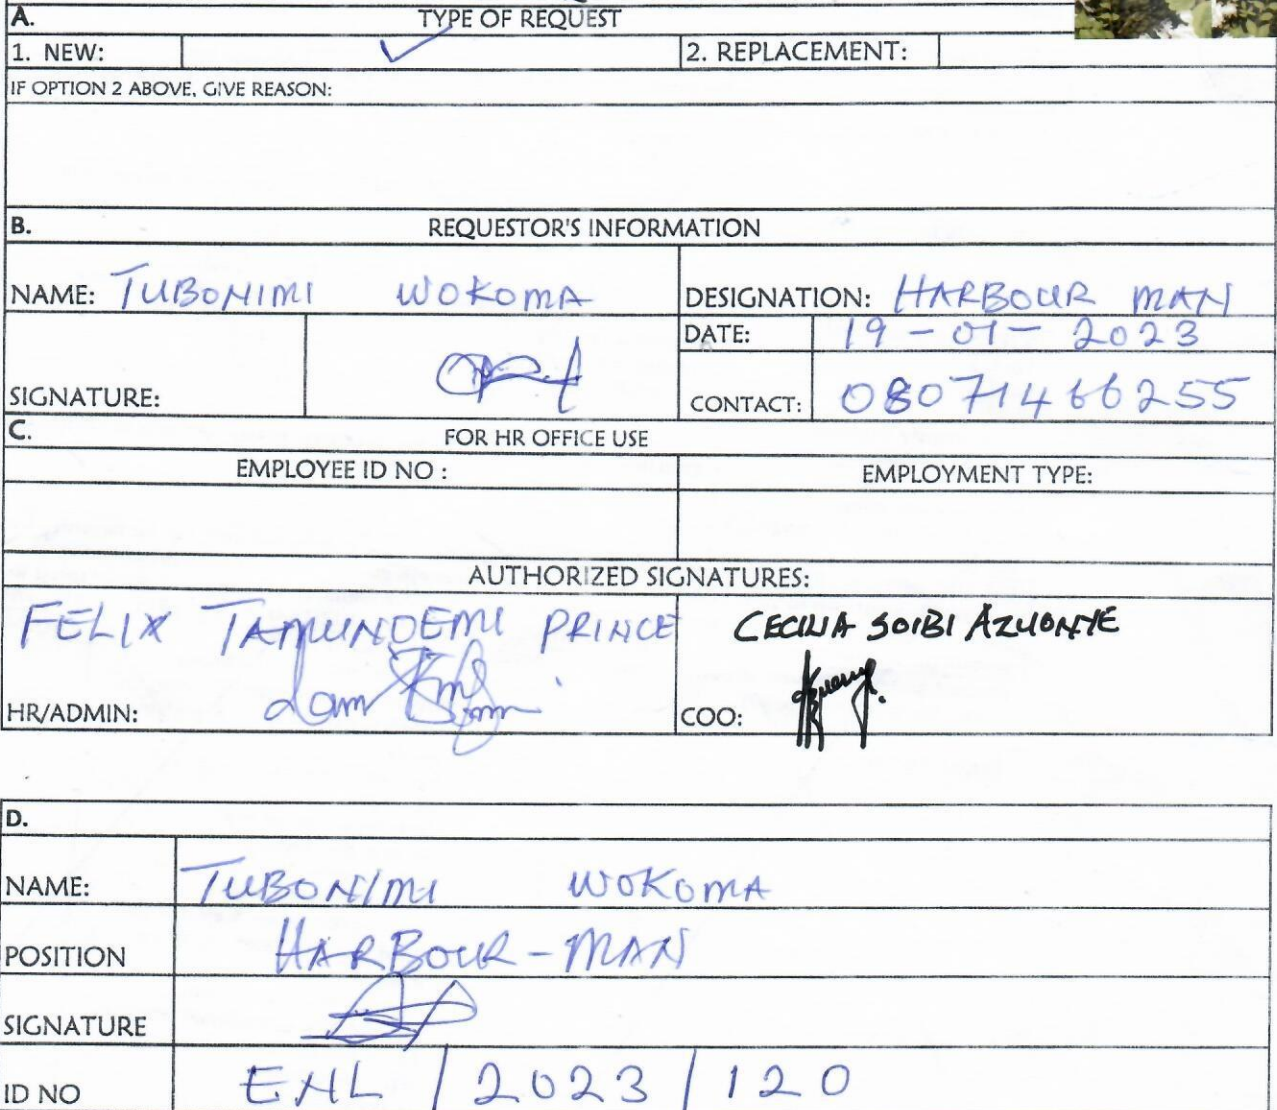 A. TYPE OF REQUEST
1. NEW: ✓ 2. REPLACEMENT:
IF OPTION 2 ABOVE, GIVE REASON:
B. REQUESTOR'S INFORMATION
NAME: TUBONIMI WOKOMA DESIGNATION: HARBOUR MAN
DATE: 19-01-2023
SIGNATURE: CONTACT: 08071466255
C. FOR HR OFFICE USE
EMPLOYEE ID NO : EMPLOYMENT TYPE:
AUTHORIZED SIGNATURES:
FELIX TAMUNDEMI PRINCE CECILIA SOIBI AZUONYE
HR/ADMIN: COO:
D.
NAME: TUBONIMI WOKOMA
POSITION HARBOUR-MAN
SIGNATURE
ID NO ENL/2023/120